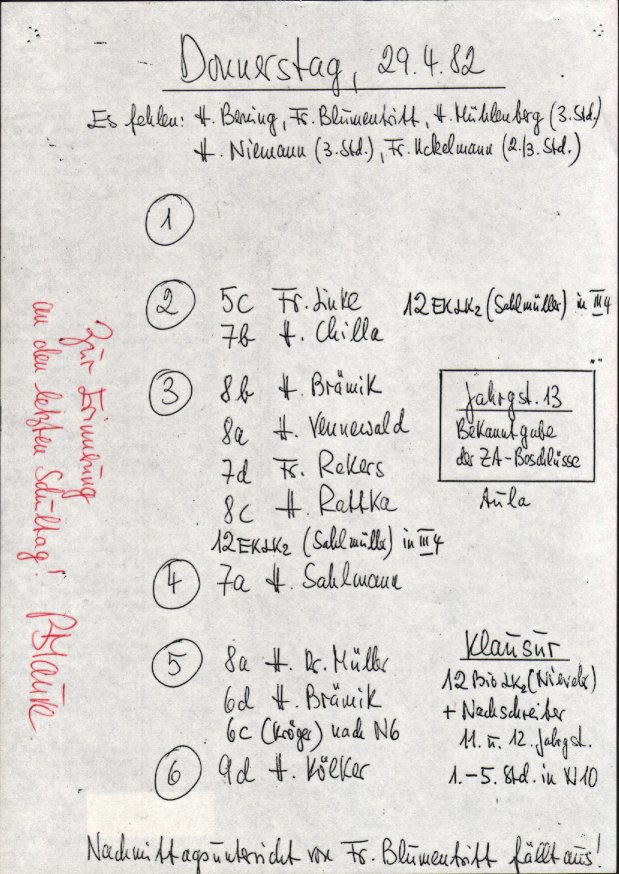 Donnerstag, 29.4.82
Es fehlen: H. Bening, Fr. Blumentritt, H. Mühlenberg (3. Std.)
H. Niemann (3. Std.), Fr. Uckelmann (2./3. Std.)
1
2 5c Fr. Linke 12 EK LK2 (Sahlmüller) in III 4
7b H. Chilla
3 8b H. Brämik
8a H. Vennewald
7d Fr. Rekers
8c H. Rattka
12 EK LK2 (Sahlmüller) in III 4
Jahrgst. 13
Bekanntgabe
der ZA-Beschlüsse
Aula
4 7a H. Sahlmann
5 8a H. Dr. Müller
6d H. Brämik
6c (Kröger) nach N6
6 9d H. Kölker
Klausur
12 Bio LK2
+ Nachschreiber
11. u. 12. Jahrgst.
1.-5. Std. in
Nachmittagsunterricht von Fr. Blumentritt fällt aus!
Zur Erinnerung
an den letzten Schultag!